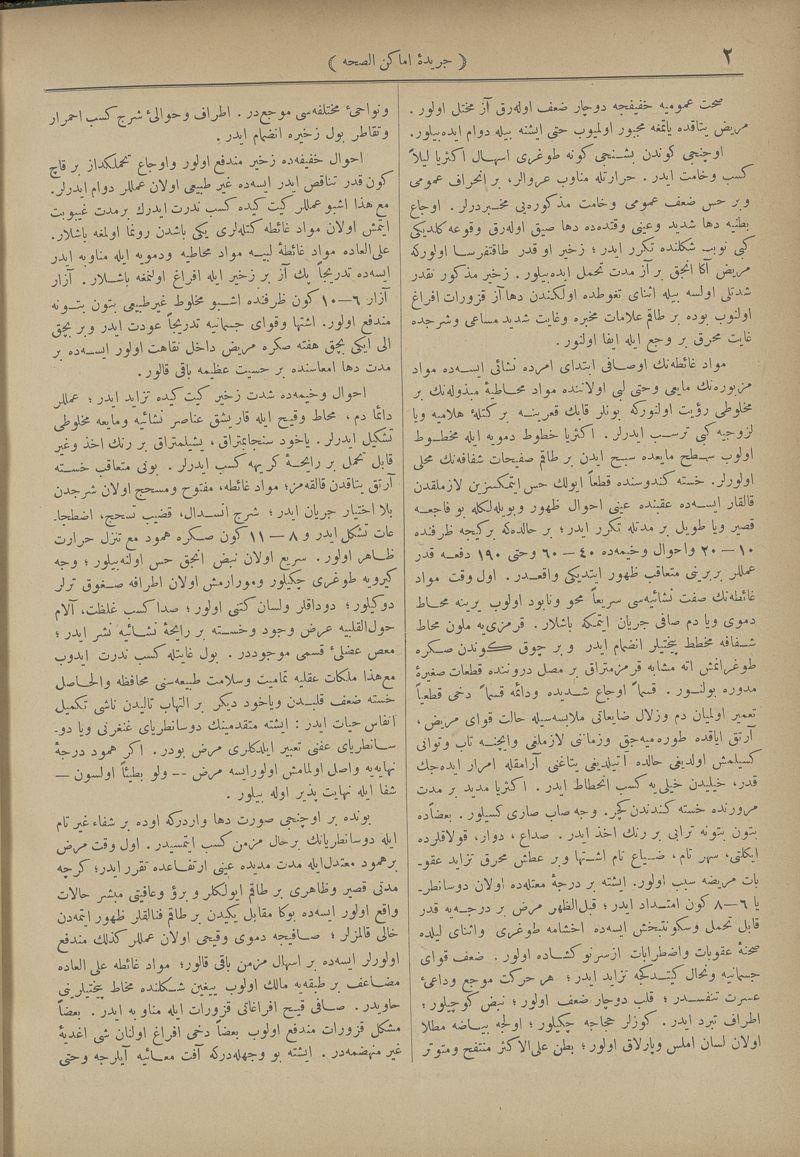 ٢
( جريدهٔ اماكن الصحه )
صحت عموميه خفيفجه دوچار ضعف اوله‌رق آز مختل اولور .
مريض يتاقده ياتمغه مجبور اولميوب حتى ايشنه بيله دوام ايده‌بيلور .
اوچنجى كوندن بشنجى كونه طوغرى اسهال اكثريا ليلاً
كسب وخامت ايدر . حرارتله مناوب عروالر، بر انحراف عمومى
وبر حس ضعف عمومى وخامت مذكوره‌يى مخبردرلر . اوجاع
بطنيه دها شديد وعينى وقتده‌ده دها صيق اوله‌رق وقوعه كلديكى
كبى نوبت شكلنده تكرر ايدر ؛ زخير او قدر طاقتفرسا اولوركه
مريض آكا انجق بر آز مدت تحمل ايده‌بيلور . زخير مذكور نقدر
شدتلى اولسه بيله اثناى تغوطده اولكندن دها آز قزورات افراغ
اولنوب بوده بر طاقم علامات مخبره وغايت شديد مساعى وشرجده
غايت محرق بر وجع ايله ايفا اولنور .
مواد غائطه‌نك اوصافى ابتداى امرده نشائى ايسه‌ده مواد
مزبوره‌نك مايعى وحتى لبى اولاننده مواد مخاطيهٔ مبذوله‌نك بر
مخلوطى رؤيت اولنوركه بونلر قابك قعرينه بر كتلهٔ هلاميه ويا
لزوجيه كبى ترسب ايدرلر . اكثريا خطوط دمويه ايله مخطوط
اولوب سطح مايعده سبح ايدن بر طاقم صفيحات شفافه‌نك محلى
اولورلر. خسته كندوسنده قطعاً ايولك حس ايتمكسزين لازملقدن
قالقار ايسه‌ده عقبنده عينى احوال ظهور وبويله‌لكله بو فاجعه
قصير ويا طويل بر مدتله تكرر ايدر ؛ بر حالده‌كه بركيجه ظرفنده
١٠ – ٢٠ واحوال وخيمه‌ده ٤٠ – ٦٠ وحتى ١٩٠ دفعه قدر
عمللر بربرينى متعاقب ظهور ايتديكى واقعدر . اول وقت مواد
غائطه‌نك صفت نشائيه‌سى سريعاً محو ونابود اولوب يرينه مخاط
دموى ويا دم صافى جريان ايتمكه باشلار . قرمزى‌يه ملون مخاط
شفافه مخطط پيختيلر انضمام ايدر وبر چوق كوندن صكره
طوغرانمش اته مشابه قرمزمتراق بر مصل دروننده قطعات صغيرهٔ
مدوره بولنور . قسماً اوجاع شديده ودائمه قسماً دخى قطعياً
تعمير اولميان دم وزلال ضايعاتى ملابسه‌سيله حالت قواى مريض،
آرتق اياقده طوره‌ميه‌جق وزماننى لازملغى وايچنه تاب وتوانى
كسيلمش اولديغى حالده آتيلديغى يتاغنى آرامقله امرار ايده‌جك
قدر، خيليدن خيلى‌يه كسب انحطاط ايدر . اكثريا مديد بر مدت
مرورنده خسته كندندن كچر. وجه صاب صارى كسيلور . بعضاً‌ده
بتون بتونه ترابى بر رنك اخذ ايدر . صداع ، دوار، قولاقلرده
ايكلتى، سهر تام ، ضياع تام اشتها وبر عطش محرق تزايد عقو-
بات مريضه سبب اولور. ايشته بر درجهٔ معتدله‌ده اولان دوسانطر-
يا ٦–٨ كون امتداد ايدر ؛ قبل‌الظهر مرض بر درجه‌يه قدر
قابل تحمل وسكونتبخش ايسه‌ده اخشامه طوغرى واثناى ليلده
صحنهٔ عقوبات واضطرابات ازسرنو كشاده اولور . ضعف قواى
جسمانيه ونحال كيتدكجه تزايد ايدر ؛ هر حركت موجع وداعئ
عسرت تنفسدر ؛ قلب دوچار ضعف اولور ؛ نبض كوچيلور ؛
اطراف تبرد ايدر. كوزلر حجاجه چكيلور ؛ اولجه بياضه مطلا
اولان لسان املس وپارلاق اولور ؛ بطن على‌الاكثر منتفخ ومتوتر
ونواحئ مختلفه‌سى موجع‌در. اطراف وحوالئ شرج كسب احمرار
وتقاطر بول زخيره انضمام ايدر .
احوال خفيفه‌ده زخير مندفع اولور واوجاع تحملكداز بر قاچ
كون قدر تناقص ايدر ايسه‌ده غير طبيعى اولان عمللر دوام ايدرلر.
مع هذا اشبو عمللر كيت كيده كسب ندرت ايدرك برمدت غيبوبت
ايتمش اولان مواد غائطه كتله‌لرى يكى باشدن رونما اولمغه باشلار.
على‌العاده مواد غائطهٔ لبيه مواد مخاطيه ودمويه ايله مناوبه ايدر
ايسه‌ده تدريجاً پك آز بر زخير ايله افراغ اولنمغه باشلار . آزار
آزار ٦–١٠ كون ظرفنده اشبو مخلوط غيرطبيعى بتون بتونه
مندفع اولور. اشتها وقواى جسمانيه تدريجاً عودت ايدر وبر بچق
الى ايكى بچق هفته صكره مريض داخل نقاهت اولور ايسه‌ده بر
مدت دها امعاسنده بر حسيت عظيمه باقى قالور .
احوال وخيمه‌ده شدت زخير كيت كيده تزايد ايدر ؛ عمللر
دائما دم ، مخاط وقيح ايله قاريشق عناصر نشائيه ومايعه مخلوطى
تشكيل ايدرلر. ياخود سنجابيمتراق ، يشيلمتراق بر رنك اخذ وغير
قابل تحمل بر رايحهٔ كريهه كسب ايدرلر . بونى متعاقب خسته
آرتق يتاقدن قالقه‌مز؛ مواد غائطه، مفتوح ومسحج اولان شرجدن
بلا اختيار جريان ايدر ؛ شرج انسدال، قضيب تسحج، اضطجا-
عات تشكل ايدر و ٨ – ١١ كون صكره همود مع تنزل حرارت
ظاهر اولور . سريع اولان نبض انجق حس اولنه‌بيلور ؛ وجه
كيرويه طوغرى چكيلور ومورارمش اولان اطرافه صغوق ترلر
دوكيلور ؛ دوداقلر ولسان كتنى اولور ؛ صدا كسب غلظت، آلام
حول‌القلبيه عرض وجود وخسته بر رايحهٔ نشائيه نشر ايدر ؛
مغص عضلئ قسمى موجوددر . بول غايتله كسب ندرت ايدوب
مع‌هذا ملكات عقليه تماميت وسلامت طبيعه‌سنى محافظه والحاصل
خسته ضعف قلبدن وياخود ديكر بر التهاب تاليدن ناشى تكميل
انفاس حيات ايدر : ايشته متقدمينك دوسانطرياى غنغرنى ويا دو-
سانطرياى عفنى تعبير ايلدكلرى مرض بودر. اكر همود درجهٔ
نهايه‌يه واصل اولمامش اولورايسه مرض -- ولو بطيئاً اولسون –
شفا ايله نهايت پذير اوله بيلور .
بونده بر اوچنجى صورت دها واردركه اوده بر شفاء غير تام
ايله دوسانطريانك برحال مزمن كسب ايتمسيدر. اول وقت مرض
برهمود معتدل‌ايله مدت مديده عينى ارتفاعده تقرر ايدر؛ كرچه
مدتى قصير وظاهرى بر طاقم ايولكلر و برؤ وعافيتى مبشر حالات
واقع اولور ايسه‌ده بوكا مقابل يكيدن بر طاقم فنالقلر ظهور ايتمه‌دن
خالى قالمزلر ؛ صافيجه دموى وقيحى اولان عمللر كذلك مندفع
اولورلر ايسه‌ده بر اسهال مزمن باقى قالور؛ مواد غائطه على العاده
مضاعف بر طبقه‌يه مالك اولوب ييغين شكلنده مخاط پيختيلرينى
حاويدر . صافى قيح افراغاتى قزورات ايله مناوبه ايدر . بعضاً
مشكل قزورات مندفع اولوب بعضاً دخى افراغ اولنان شى اغديهٔ
غير منهضمه‌در. ايشته بو وجهله‌دركه آفت معائيه آيلرجه وحتى